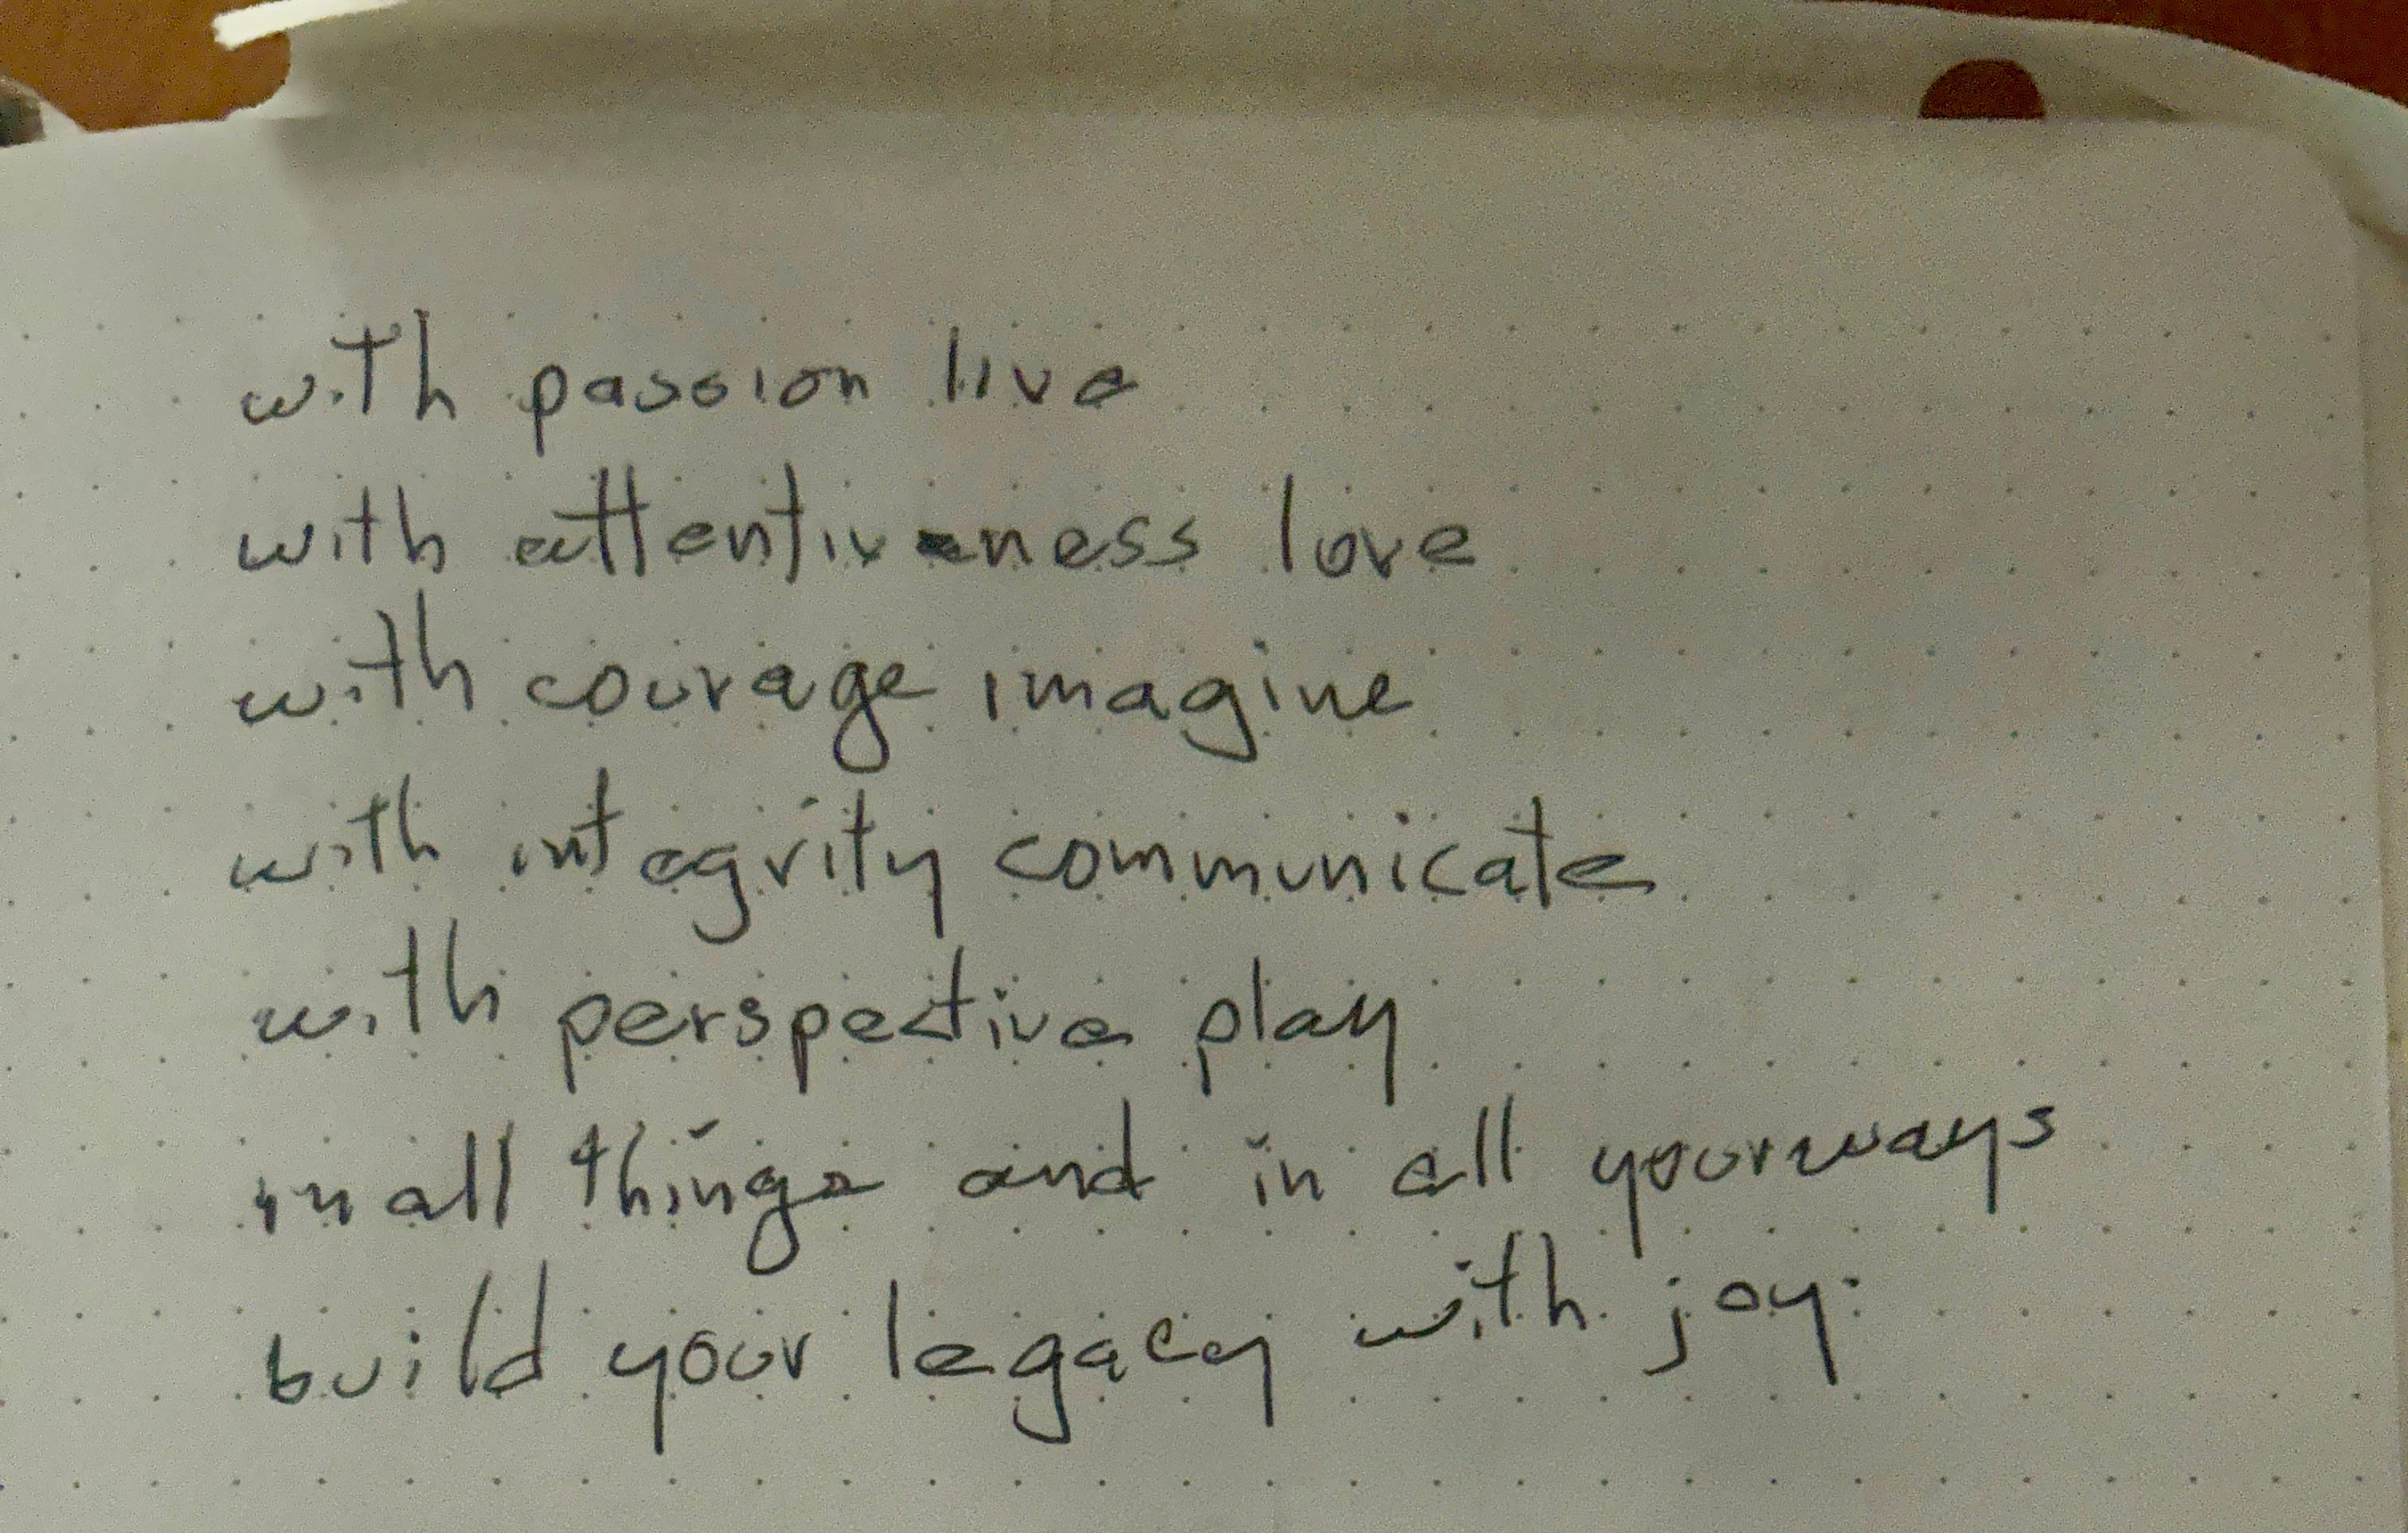 with passion live
with attentiveness love
with courage imagine
with integrity communicate
with perspective play
in all things and in all your ways
build your legacy with joy.